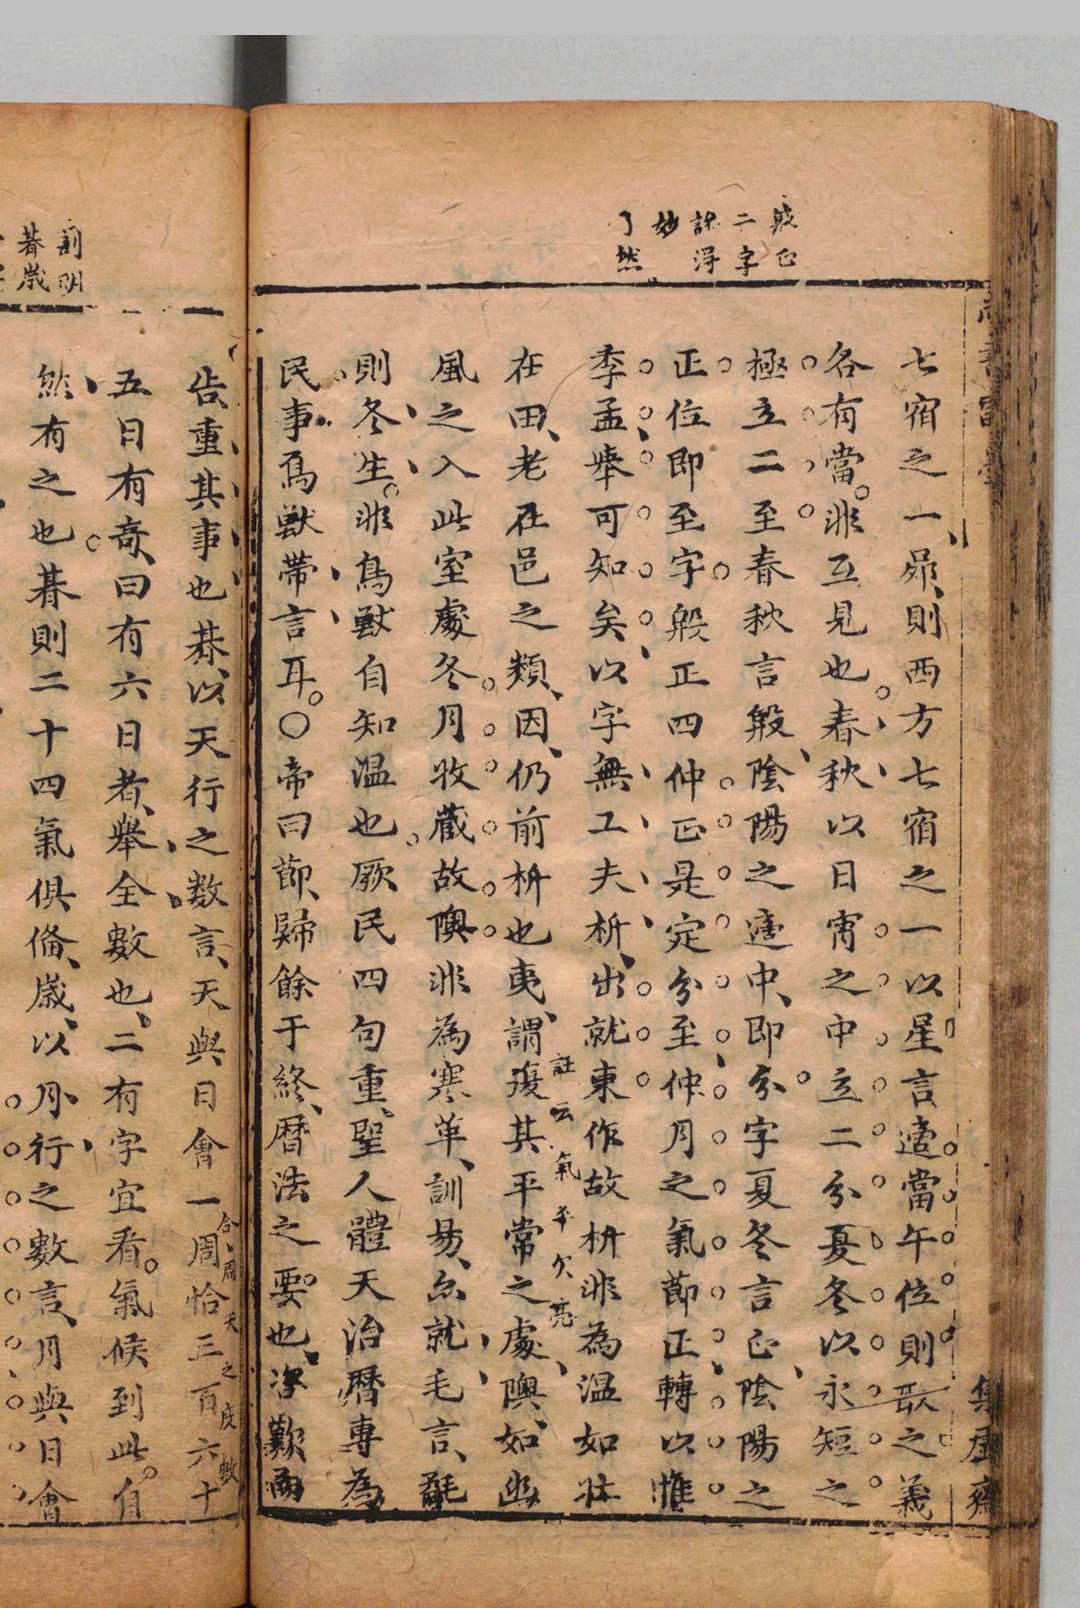 殷正
二字
說得
妙
了然
七宿之一昴則西方七宿之一以星言適當午位則殷之義
各有當非互見也春秋以日宵之中立二分夏冬以永短之
極立二至春秋言殷陰陽之適中即分字夏冬言正陰陽之
正位即至字殷正四仲正是定分至仲月之氣節正轉以惟
季孟舉可知矣以字無工夫析出就東作故析非為溫如壯
在田老在邑之類因仍前析也夷謂復其平常之處隩如幽
註云氣平欠亮
風之入此室處冬月收藏故隩非為寒革訓易亦就毛言氄
則冬生非鳥獸自知溫也厥民四句重聖人體天治曆專為
民事鳥獸帶言耳〇帝曰節歸餘于終曆法之要也淳歎而
集虛齋
告重其事也朞以天行之數言天與日會一周恰三百六十
合周天之度數
五日有奇曰有六日者舉全數也二有字宜看氣候到此自
然有之也朞則二十四氣俱備歲以月行之數言月與日會
剖明
朞歲